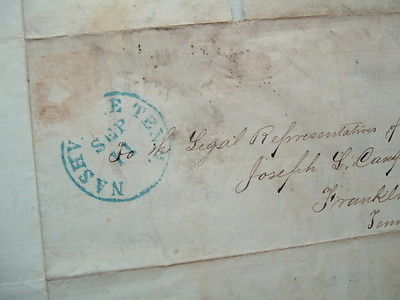 NASHV E TEN
SEP
1
To the Legal Representatives of
Joseph L. Camp
Frankl
Tenn